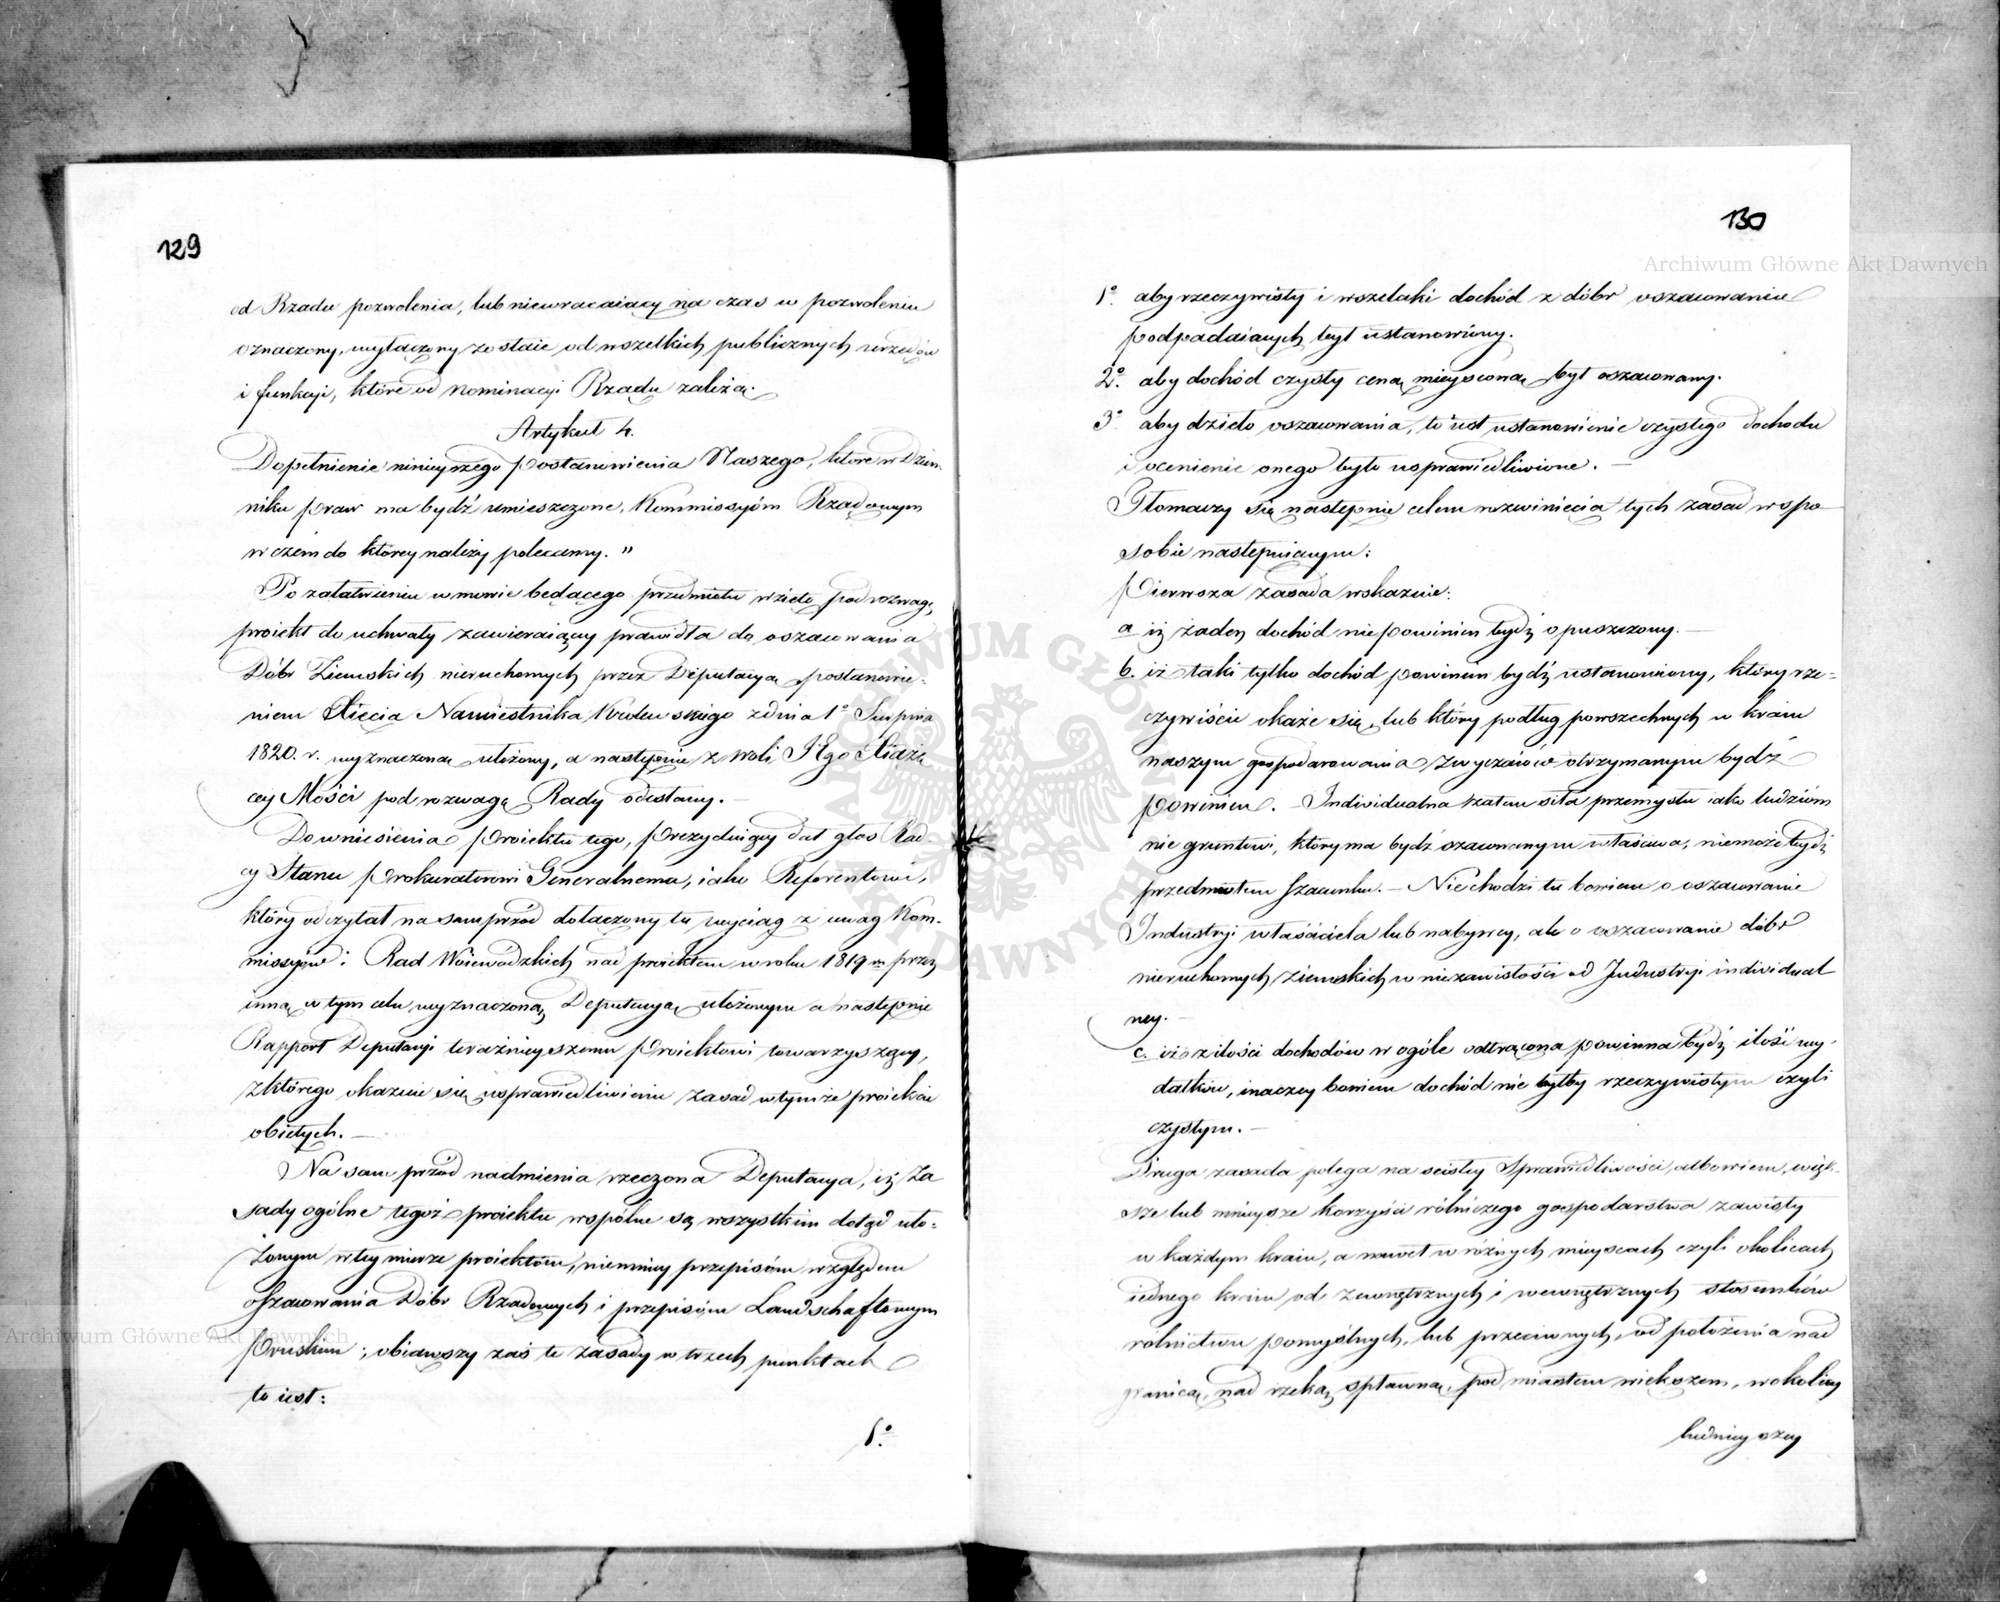 129
od Rządu pozwolenia, lub niewracaiący na czas w pozwoleniu
oznaczony, wyłączony zostaie od wszelkich publicznych urzędów
i funkcji, które od nominacyi Rządu zależą.
Artykuł 4.
Dopełnienie ninieyszego Postanowienia Naszego, które w Dzien-
niku praw ma bydź umieszczone, Kommissyóm Rządowym
w czém do którey należy polecamy. "
Po załatwieniu w mowie będącego przedmiotu wzięto pod rozwagę
proiekt do uchwały zawieraiący prawidła do oszacowania
Dóbr Ziemskich nieruchomych przez Deputacyą postanowie-
niem Xięcia Namiestnika Królewskiego z dnia 1º Sierpnia
1820. r. wyznaczoną ułożony, a następnie z woli JEgo Xiążę
cey Mości pod rozwagę Rady odesłany. –
Do wniesienia Proiektu tego, Prezyduiący dał głos Rad-
cy Stanu Prokuratorowi Generalnemu, iako Referentowi,
który odczytał na samprzód dołączony tu wyciąg z uwag Kom-
missyów i Rad Woiewódzkich nad proiektem w roku 1819m przez
inną w tym celu wyznaczoną Deputacyą ułożonym a następnie
Rapport Deputacyi teraźnieyszemu Proiektowi towarzyszący,
z którego okazuie się usprawiedliwienie zasad w tymże proiekcie
obiętych. –
Na sam przód nadmienia rzeczona Deputacya, iż Za
sady ogólne tegoż proiektu wspólne są wszystkim dotąd uło-
żonym w tey mierze proiektóm, niemniey przepisóm względem
oszacowania Dóbr Rządowych i przepisóm Landschaftowym
Pruskim; obiąwszy zaś te zasady w trzech punktach
to iest:
1º.
130
1º. aby rzeczywisty i wszelaki dochód z dóbr oszacowanie
podpadaiących był ustanowiony.
2º. aby dochód czysty ceną mieyscową był oszacowany.
3º aby dzieło oszacowania, to iest ustanowienie czystego dochodu
i ocenienie onego było usprawiedliwione. –
Tłomaczy się następnie celem rozwinięcia tych zasad w spo
sobie następuiącym:
Pierwsza zasada wskazuie:
a iż żaden dochód nie powinien bydź opuszczony. –
b. iż taki tylko dochód powinien bydź ustanowiony, który rze-
czywiście okaże się, lub który podług powszechnych w kraiu
naszym gospodarowania zwyczaiów otrzymanym bydź
powinien. – Individualna zatem siła przemysłu iako ludzióm
nie gruntowi, który ma bydź szacowanym właściwa, nie może bydź
przedmiotem szacunku. – Nie chodzi tu bowiem o oszacowanie
Industryi właściciela lub nabywcy, ale o oszacowanie dóbr
nieruchomych ziemskich w niezawisłości od Industryi individual
ney. –
c. iż z ilości dochodów w ogóle odtrącona powinna bydź ilość wy-
datków, inaczey bowiem dochód nie byłby rzeczywistym czyli
czystym. –
Druga zasada polega na scisłey Sprawiedliwości, albowiem, więk-
sze lub mnieysze korzyści rólniczego gospodarstwa zawisły
w każdym kraiu, a nawet w różnych mieyscach czyli okolicach
iednego kraiu od zewnętrznych i wewnętrznych stosunków
rólnictwu pomyślnych, lub przeciwnych, od położenia nad
granicą, nad rzeką spławną, pod miastem większem, w okolicy
ludnieyszey
Archiwum Główne Akt Dawnych
Archiwum Główne Akt Dawnych
ARCHIWUM GŁÓWNE AKT DAWNYCH